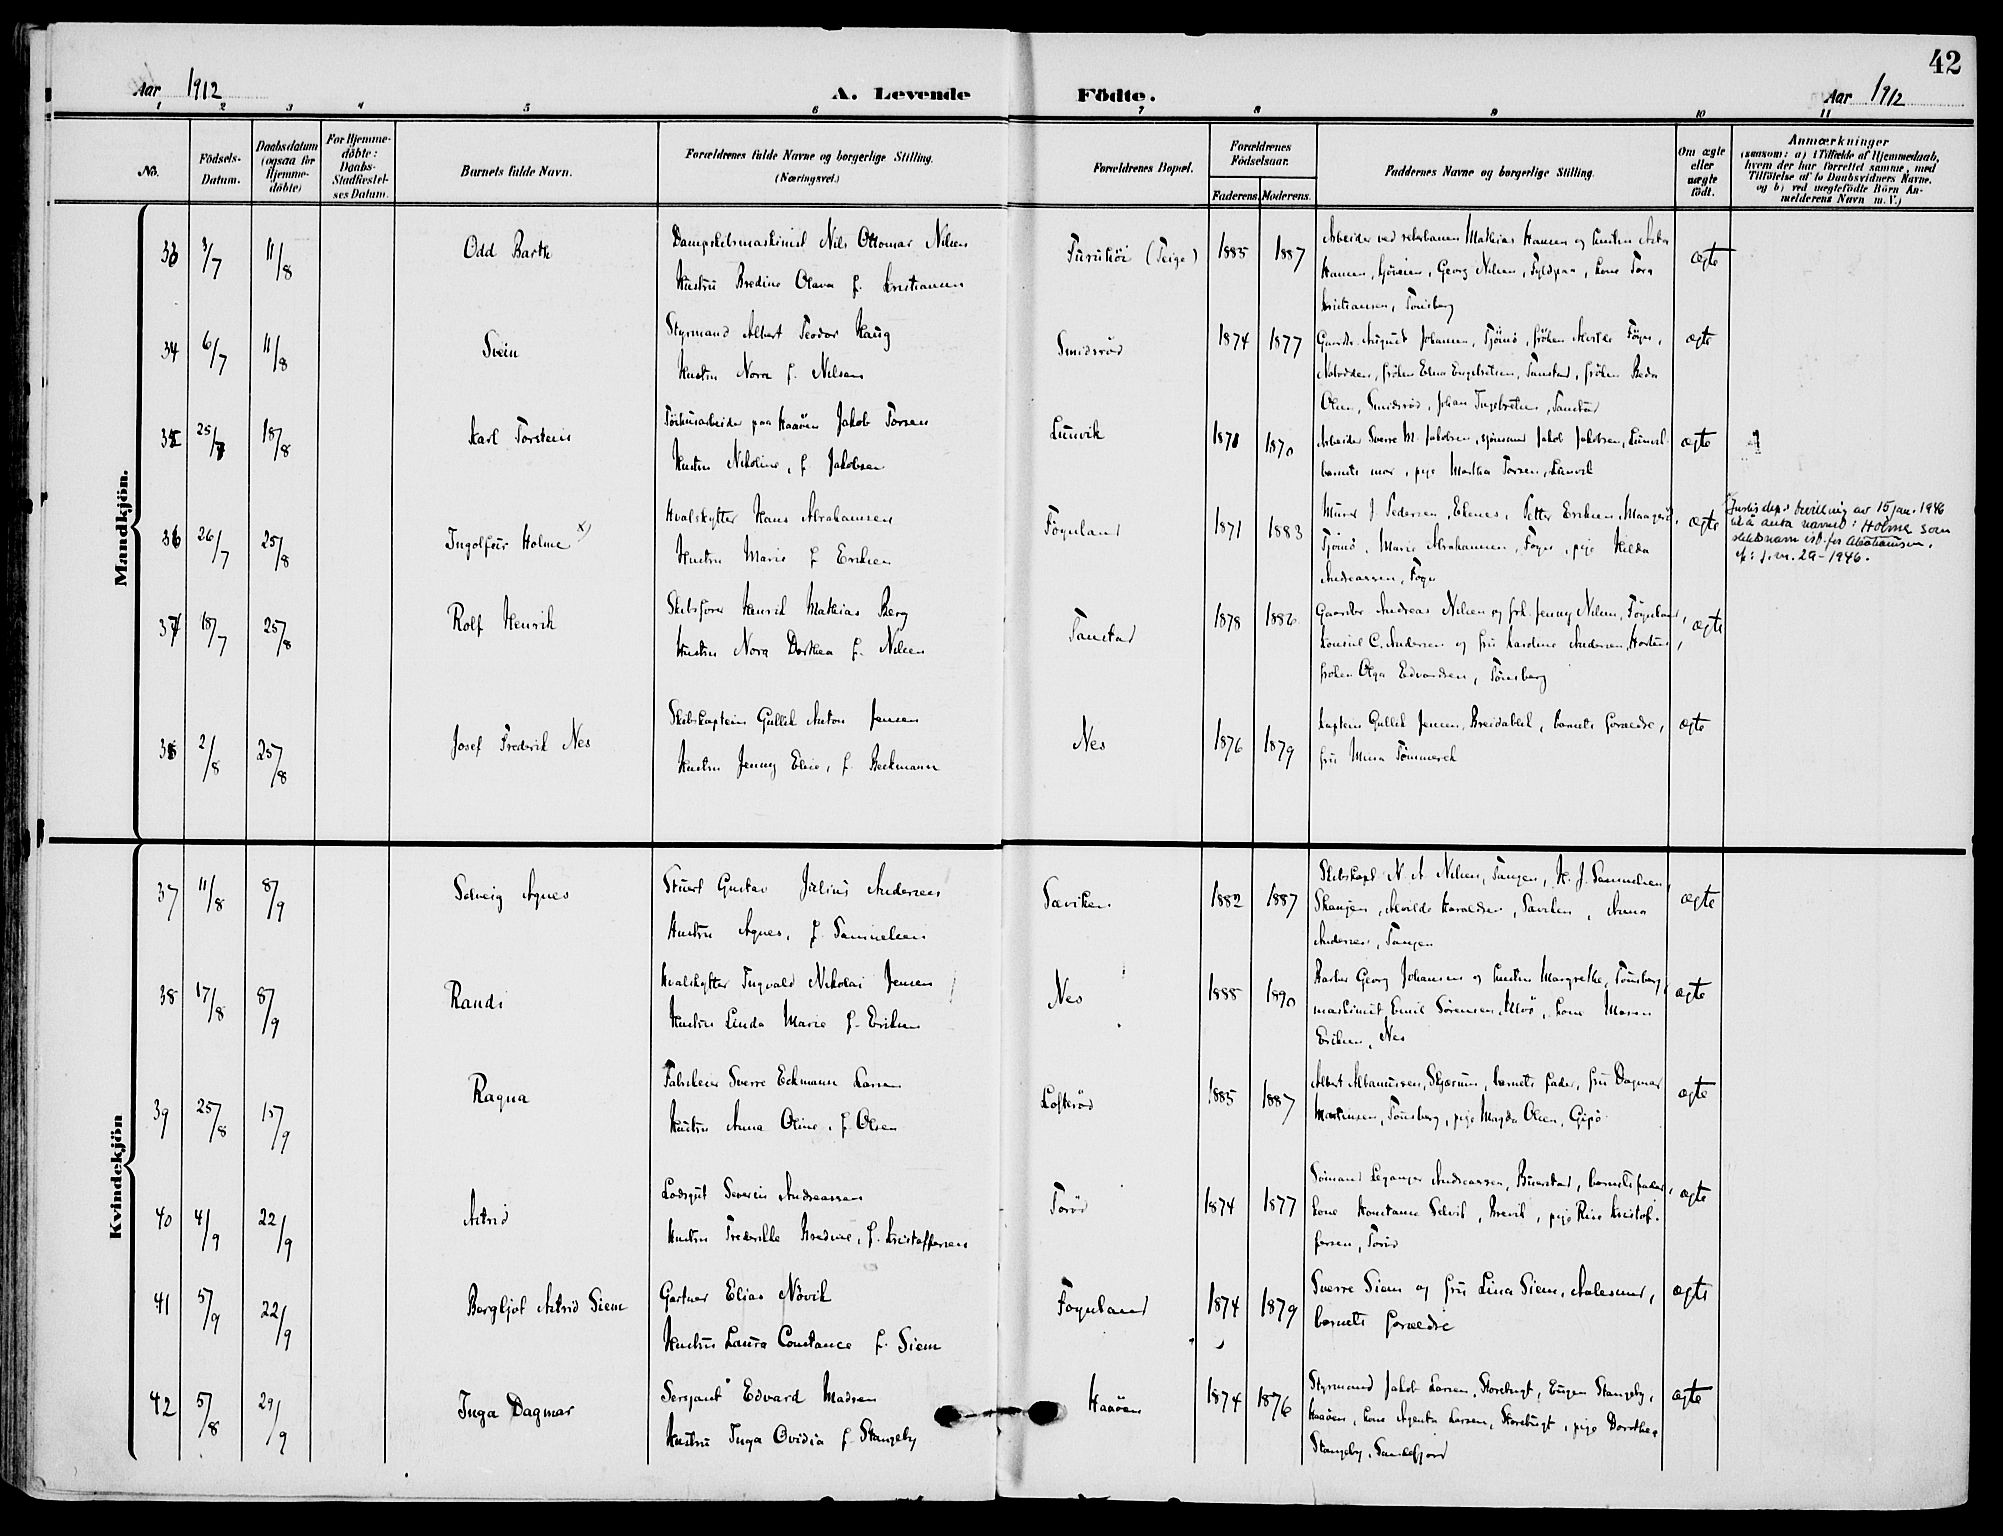 42
Aar 1912
A. Levende Födte.
Aar 1912
1 2 3 4 5 6 7 8 9 10 11
No.
Födsels-Datum.
Daabsdatum (ogsaa for Hjemmedöbte)
For Hjemmedöbte: Daabs-Stadfæstelses Datum.
Barnets fulde Navn.
Forældrenes fulde Navne og borgerlige Stilling. (Næringsvei.)
Forældrenes Bopæl.
Forældrenes Födselsaar.
Faderens. Moderens.
Faddernes Navne og borgerlige Stilling.
Om ægte eller uægte födt.
Anmærkninger
(saasom: a) i Tilfælde af Hjemmedaab,
hvem der har forrettet samme, med
Tilföielse af to Daabsvidners Navne.
og b) ved uægtefödte Börn An-
melderens Navn m. V.)
Mandkjön.
33 3/7 11/8 Odd Barth
Dampskibsmaskinist Nils Ottomar Nilsen
Hustru Bredine Olava f. Kristiansen
(Teige) 1885 1887
Arbeider ved Mathias Hansen og hustru
Hansen, Georg Nilsen, kone Tora
Kristiansen, Tönsberg
ægte
34 6/7 11/8 Svein
Styrmand Albert Teodor Haug
Hustru Nora f. Nilsen
Smidsröd 1874 1877
August Johansen, Tjömö, fröken
fröken Edna Engebretsen, Tanstad, fröken Beda
Olsen, Smidsröd, Johan Ingebretsen, Tanstad
ægte
35 25/7 18/8 Karl Torstein
paa Haaöen Jakob Torsen
Hustru Nikoline, f. Jakobsen
Lunvik 1871 1870
Arbeider Sverre M. Jakobsen, sjömand Jakob Jakobsen, Lunvik
barnets mor, pige Martha Torsen, Lunvik
ægte
36 26/7 25/8 Ingolfur Holme x)
Hvalskytter Hans Abrahamsen
Hustru Marie f. Eriksen
Föynland 1871 1883
Murer J. Pedersen, Ekenes, Petter Eriksen,
Tjömö, Marie Abrahamsen, Föyn, pige Hilda
Andreassen, Föyn
ægte
Justisdep.s bevilling av 15 jan. 1946
til å anta navnet: Holme som
slektsnavn ist. for Abrahamsen.
jf: j.nr. 29-1946.
37 18/7 25/8 Rolf Henrik
Skibsförer Henrik Mathias Berg
Hustru Nora Dorthea f. Nilsen
Tanstad 1878 1882
Gaardbr Andreas Nilsen og frk. Jenny Nilsen, Föynland,
Konsul C. Andersen og fru Andersen, Horten,
fröken Olga Edvardsen, Tönsberg
ægte
38 2/8 25/8 Josef Fredrik Nes
Skibskaptein Gullik Anton Jensen
Hustru Jenny Elise, f. Beckmann
Nes 1876 1879
Kaptein Gullik Jensen, Breidablik, barnets forældre,
fru Mina Tömmerek
ægte
Kvindekjön
37 11/8 8/9 Solveig Agnes
Stuert Gustav Julius Andersen
Hustru Agnes, f. Samuelsen
Saviken 1882 1887
Skibskapt N. A. Nilsen, Tangen, H. J. Samuelsen,
Skangen, Alvilde Haraldsen, Saviken, Anna
Andersen, Tangen
ægte
38 17/8 8/9 Randi
Hvalskytter Ingvald Nikolai Jensen
Hustru Linda Marie f. Eriksen
Nes 1888 1890
Barber Georg Johansen og hustru Margrethe, Tönsberg,
maskinist Emil Sörensen, kone Maren
Eriksen, Nes
ægte
39 25/8 15/9 Ragna
Sverre Eckmann Larsen
Hustru Anna Oline, f. Olsen
Lofteröd 1885 1887
Albert Albanussen, barnets fader, fru Dagmar
Martinsen, Tönsberg, pige Magda Olsen, Gipö
ægte
40 4/9 22/9 Astrid
Lodsgut Severin Andreassen
Hustru Fredrikke Bredine, f. Kristoffersen
Toröd 1874 1877
Sömand Leganger Andreassen, Buerstad, barnets fader,
kone Konstance Selvik, Brevik, pige Kristof-
fersen, Toröd
ægte
41 5/9 22/9 Borgljot Astrid Siem
Gartner Elias Növik
Hustru Laura Constance f. Siem
Föynland 1874 1879
Sverre Siem og fru Lina Siem, Aalesund,
barnets forældre
ægte
42 5/8 29/9 Inga Dagmar
Sersjant Edvard Madsen
Hustru Inga Ovidia f. Stangeby
Haaöen 1874 1876
Styrmand Jakob Larsen, Storebugt, Eugen Stangeby,
Haaöen, kone Agenta Larsen, Storebugt, pige Dorothea
Stangeby, Sandefjord
ægte